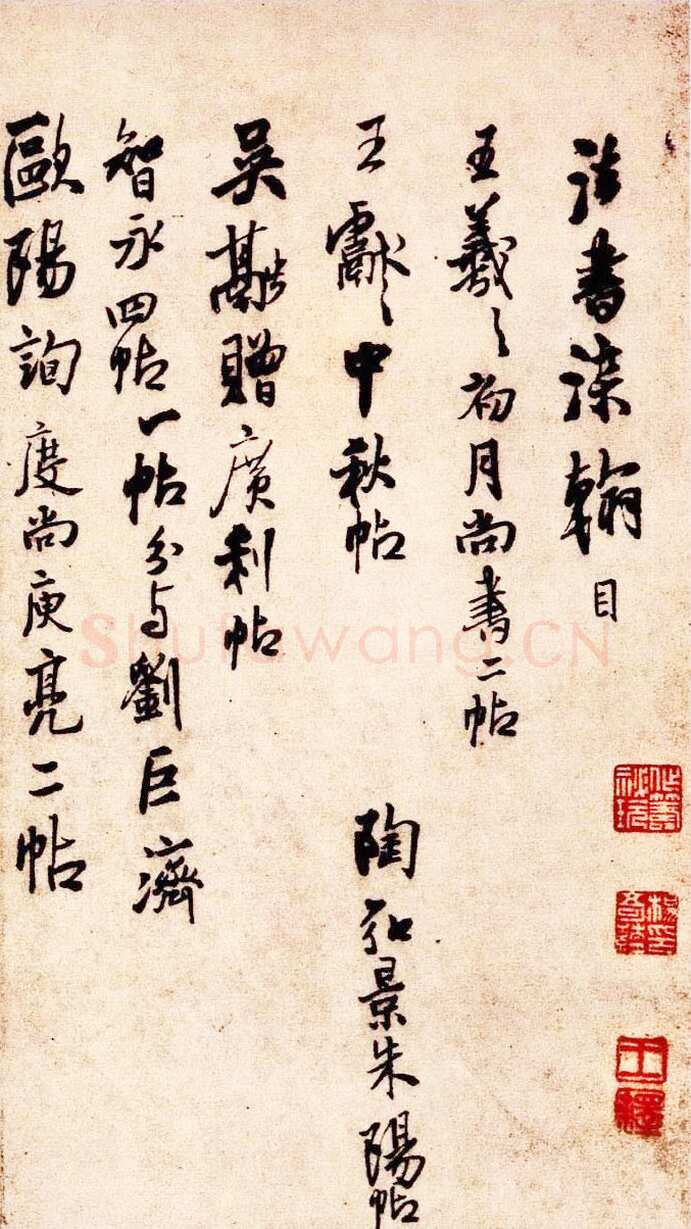 法書染翰目
王羲之初月尚書二帖
王獻之中秋帖 陶弘景朱陽帖
吳融贈廣利帖
智永四帖一帖分与劉巨濟
歐陽詢度尚庾亮二帖
Shufawang.CN